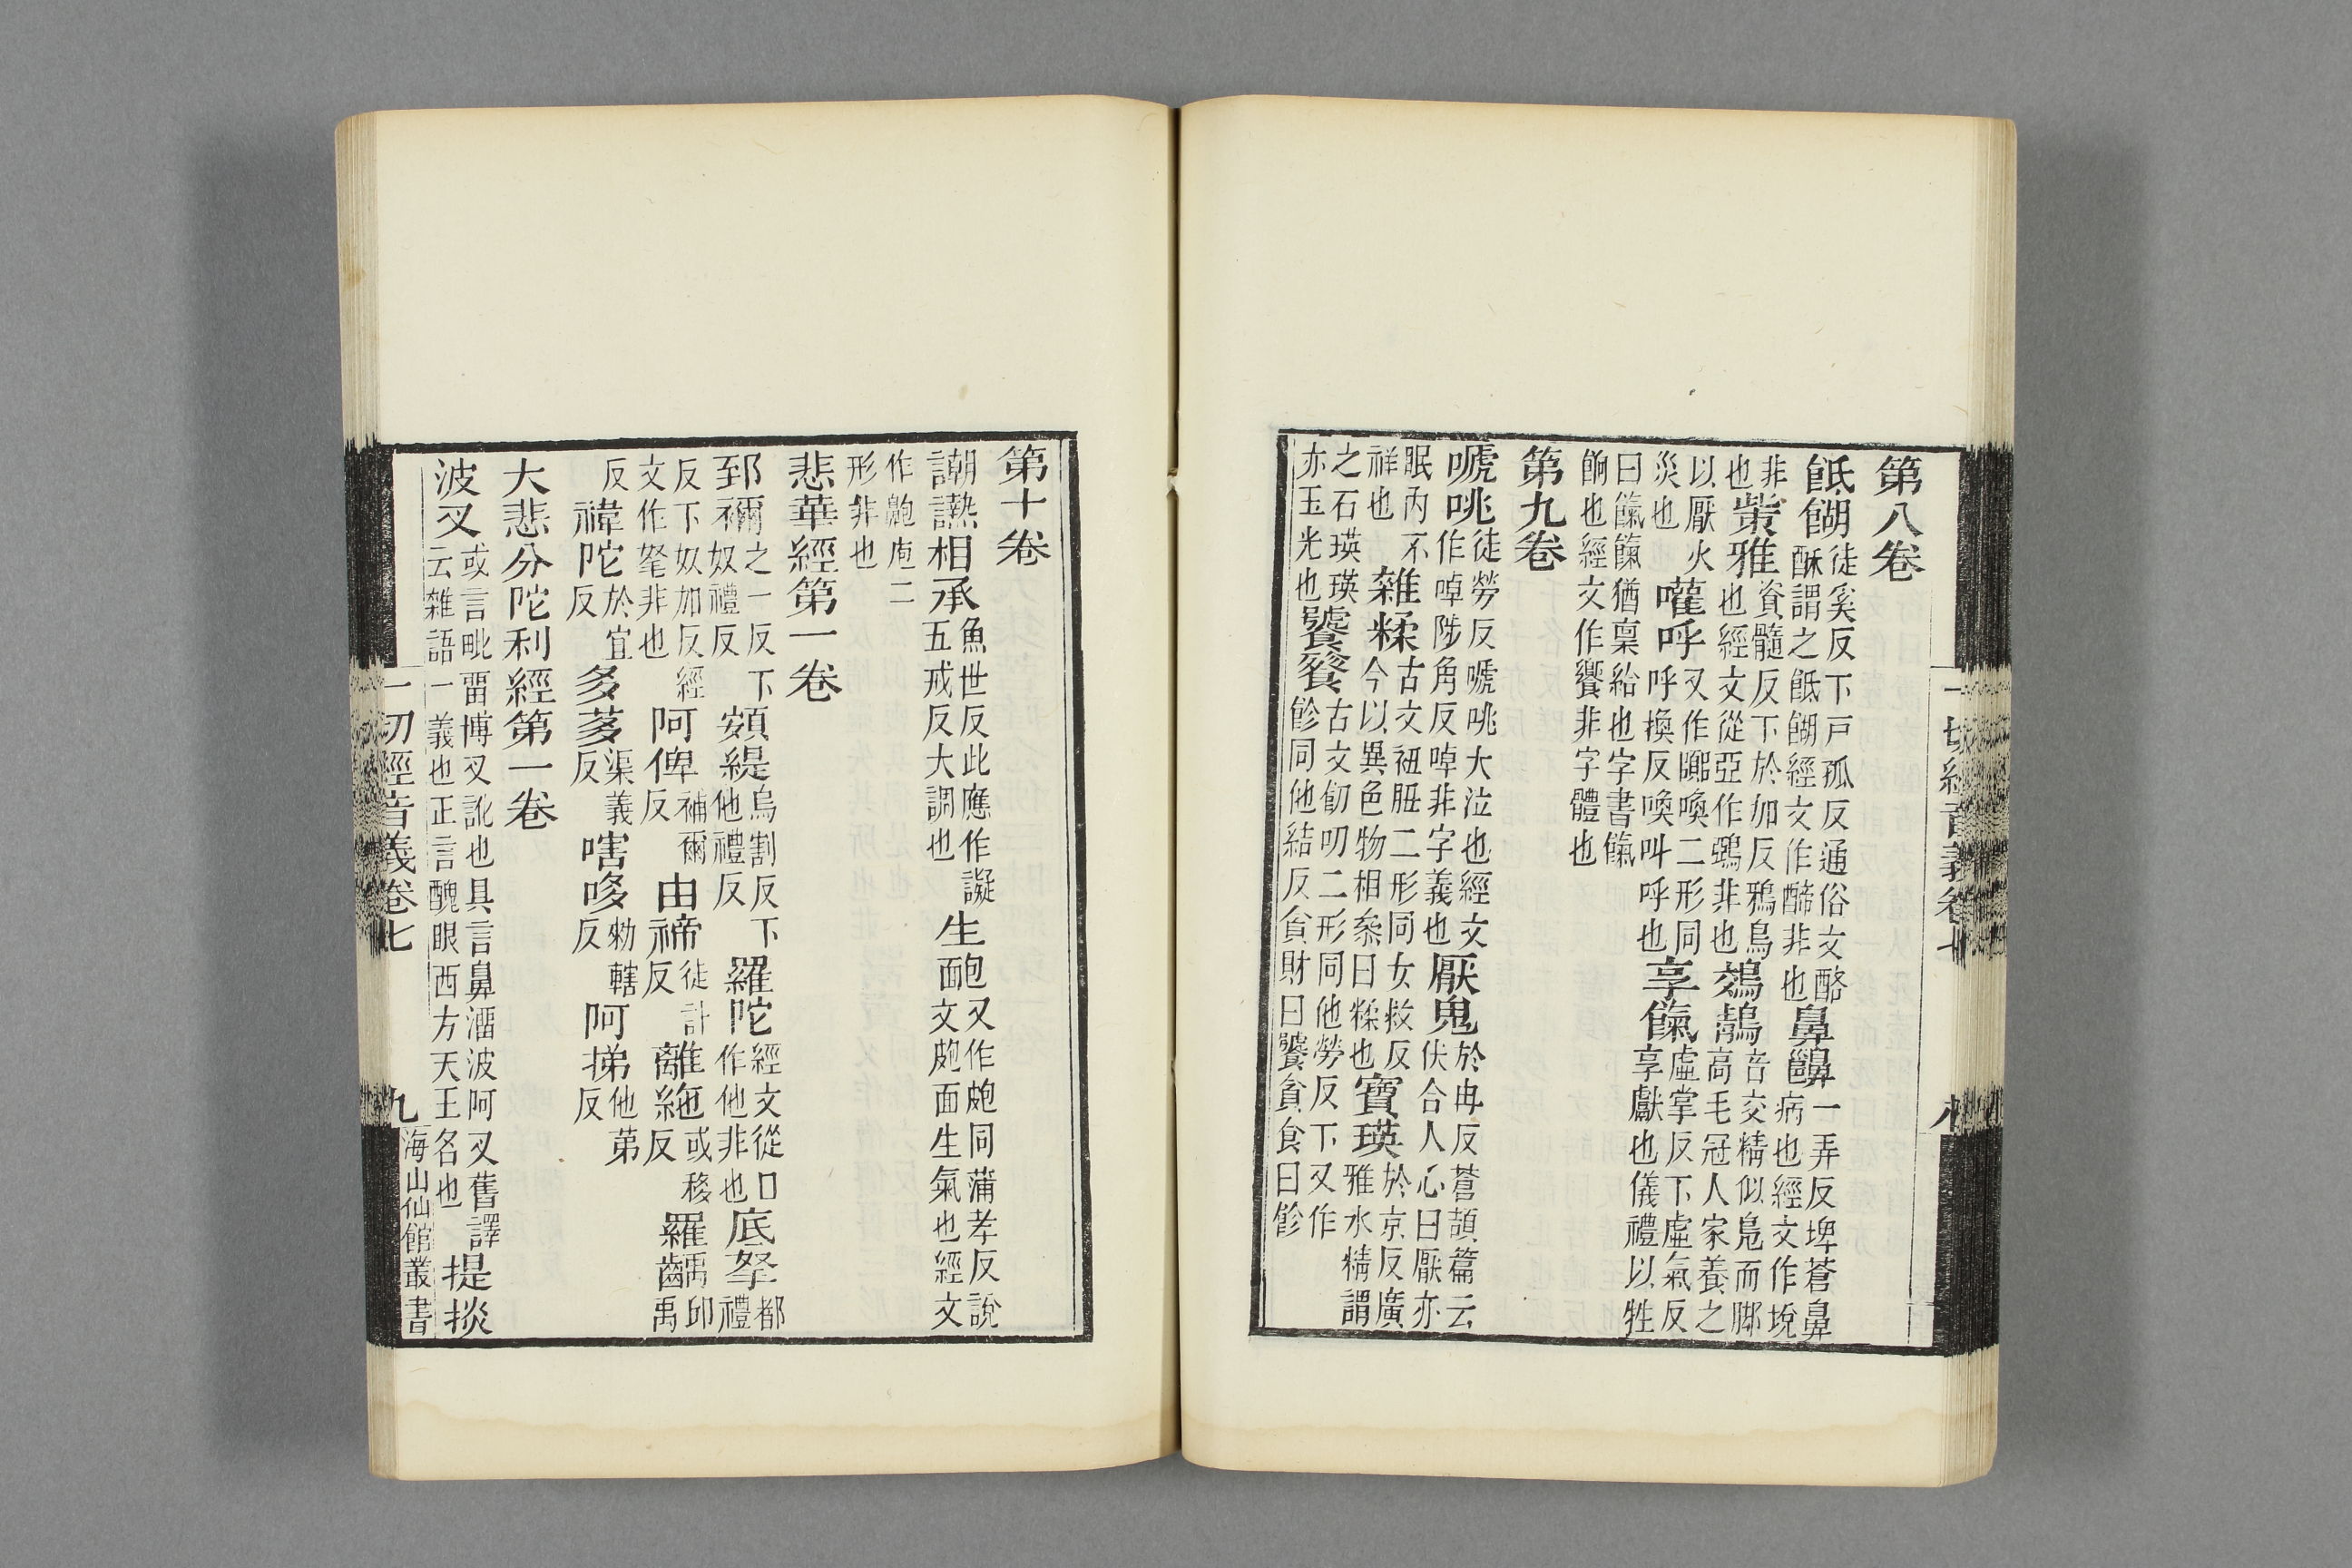 一切經音義卷七
八
第八卷
䬫餬徒奚反下戸孤反通俗文酪酥謂之䬫餬經文作啼非也鼻齆一弄反埤蒼鼻病也經文作
非也觜雅資髓反下於加反鴉鳥也經文從亞作鵶非也鵁鶄音交精似鳧而腳高毛冠人家養之
以厭火災也嚾呼又作喚二形同呼換反喚叫呼也享餼虛掌反下虛氣反享獻也儀禮以牲
曰餼餼猶稟給也字書餼餉也經文作饗非字體也
第九卷
嗁咷徒勞反嗁咷大泣也經文作啅陟角反啅非字義也厭鬼於冉反蒼頡篇云伏合人心曰厭亦
眠內不祥也雜糅古文粈䏔二形同女救反今以異色物相叅曰糅也寶瑛於京反廣雅水精謂
之石瑛瑛亦玉光也饕餮古文飻叨二形同他勞反下又作飻同他結反貪財曰饕貪食曰飻
第十卷
謿讛相承魚世反此應作譺五戒反大調也生皰又作皰同蒲孝反說文皰面生氣也經文
作皰疱二形非也
悲華經第一卷
郅禰之一反下奴禮反頞緹烏割反下他禮反羅陀經文從口作他非也底拏都禮
反下奴加反經文作毞非也阿俾補爾反由禘徒計反離絁或移反羅齲禹卬禹
反褘陀於宜反多茤渠義反嗐哆勑轄反阿挮他第反
大悲分陀利經第一卷
波叉或言毗畱博叉訛也具言鼻溜波阿叉舊譯云雜語一義也正言醜眼西方天王名也提掞
一切經音義卷七
九
海山仙館叢書